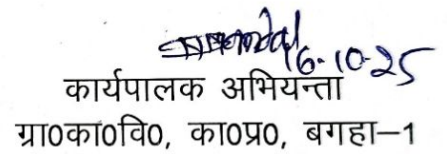 16-10-25
कार्यपालक अभियन्ता
ग्रा0का0वि0, का0प्र0, बगहा–1